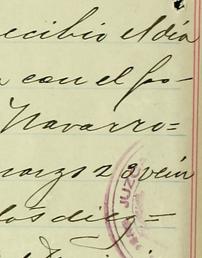 ecibio el día
con el fo-
Navarro=
marzo 29 vein
los diez=
JUZ